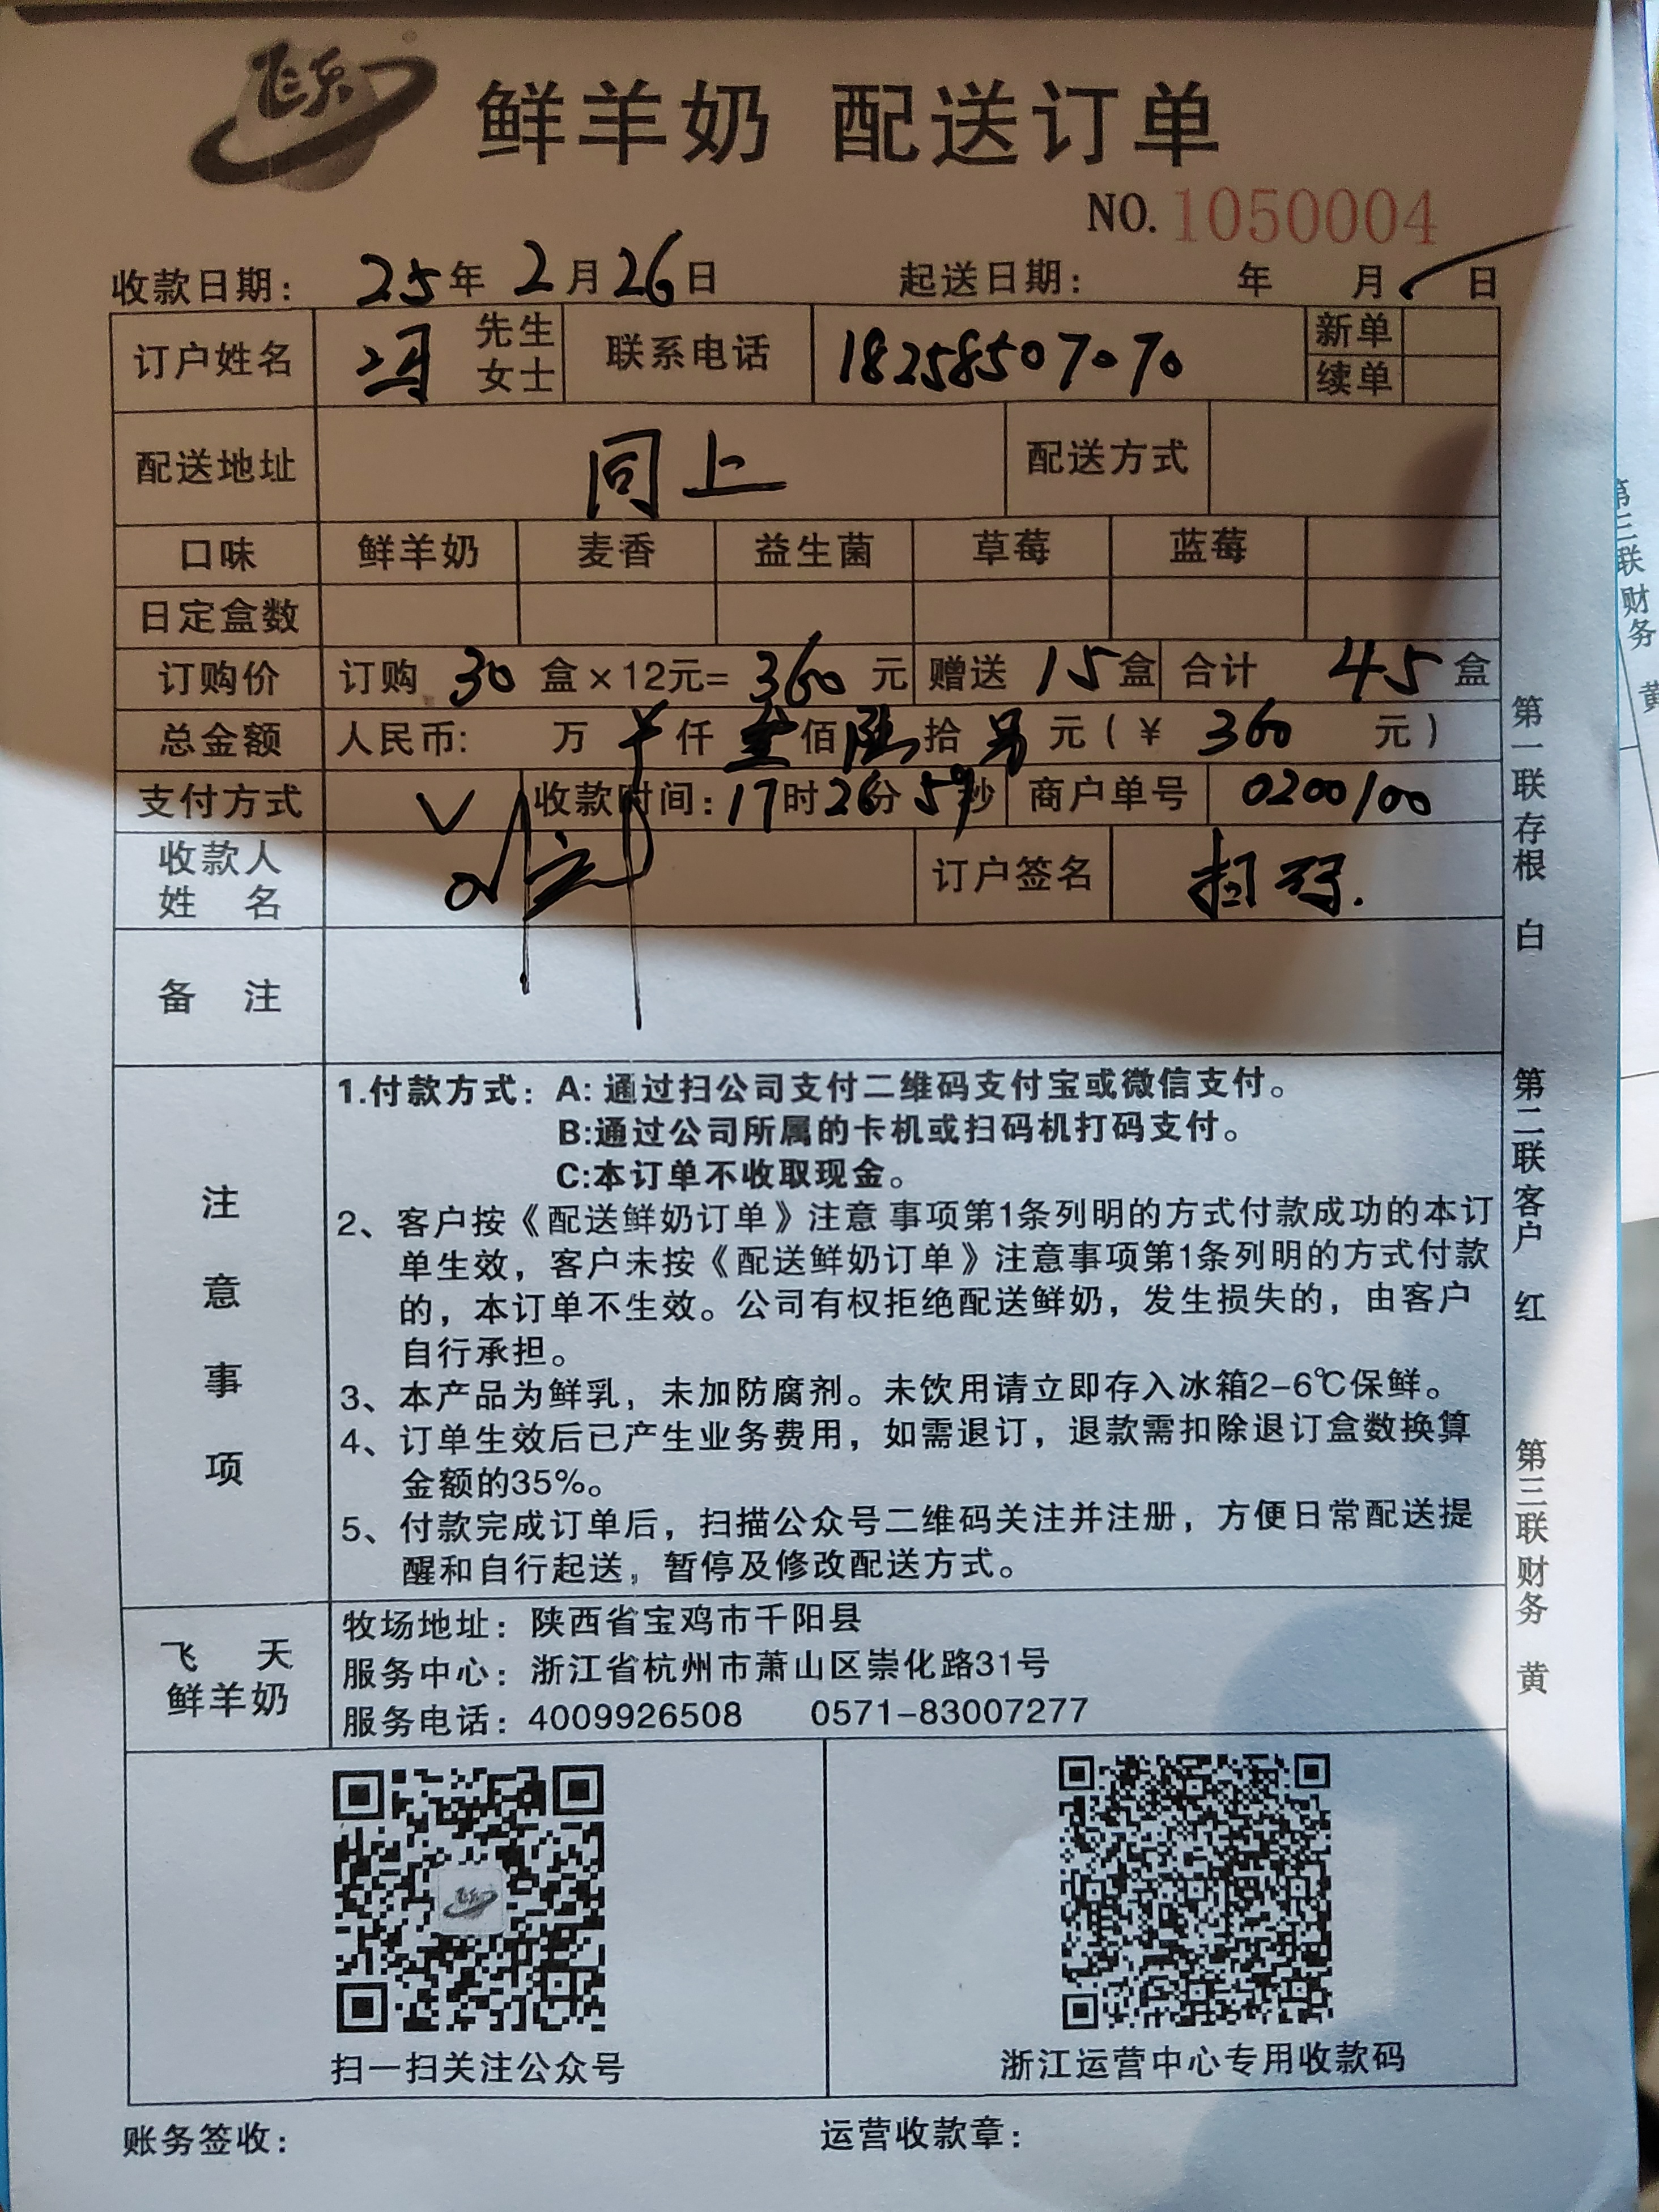 飞天
鲜羊奶 配送订单
NO.1050004
收款日期： 25年2月26日 起送日期： 年 月 日
订户姓名 冯 先生 女士 联系电话 18258507070 新单 续单
配送地址 同上 配送方式
口味 鲜羊奶 麦香 益生菌 草莓 蓝莓
日定盒数
订购价 订购 30 盒×12元= 360 元 赠送 15 盒 合计 45 盒
总金额 人民币: 万 仟 叁 佰 陆 拾 元（¥ 360 元）
支付方式 ✓ 收款时间: 17时26分59秒 商户单号 0200100
收款人
姓 名 订户签名 扫码.
备 注
注意事项
1.付款方式：A: 通过扫公司支付二维码支付宝或微信支付。
B:通过公司所属的卡机或扫码机打码支付。
C:本订单不收取现金。
2、客户按《配送鲜奶订单》注意 事项第1条列明的方式付款成功的本订
单生效，客户未按《配送鲜奶订单》注意事项第1条列明的方式付款
的，本订单不生效。公司有权拒绝配送鲜奶，发生损失的，由客户
自行承担。
3、本产品为鲜乳，未加防腐剂。未饮用请立即存入冰箱2-6℃保鲜。
4、订单生效后已产生业务费用，如需退订，退款需扣除退订盒数换算
金额的35%。
5、付款完成订单后，扫描公众号二维码关注并注册，方便日常配送提
醒和自行起送，暂停及修改配送方式。
飞 天
鲜羊奶
牧场地址：陕西省宝鸡市千阳县
服务中心：浙江省杭州市萧山区崇化路31号
服务电话：4009926508 0571-83007277
扫一扫关注公众号
浙江运营中心专用收款码
账务签收：
运营收款章：
第一联存根 白
第二联客户 红
第三联财务 黄
第三联财务 黄